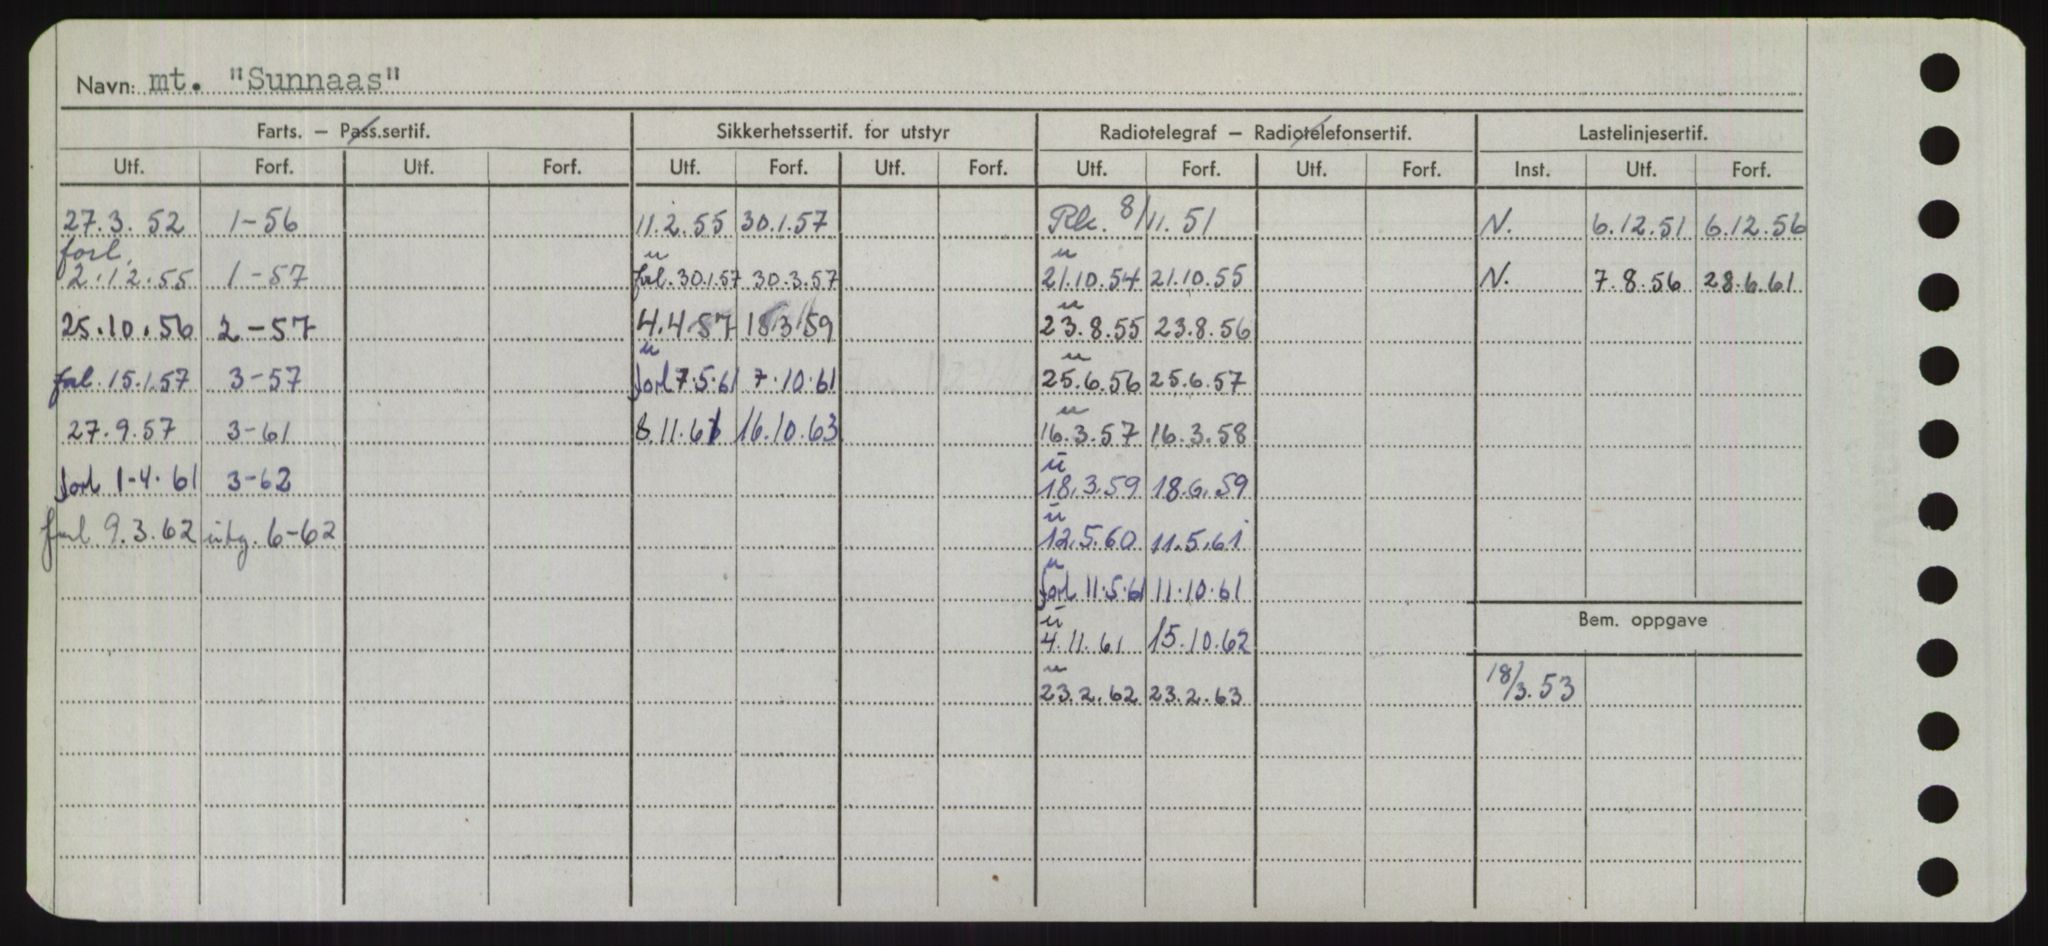 Navn: mt. "Sunnaas"
Farts. — Pass.sertif. Sikkerhetssertif. for utstyr Radiotelegraf — Radiotelefonsertif. Lastelinjesertif.
Utf. Forf. Utf. Forf. Utf. Forf. Utf. Forf. Utf. Forf. Utf. Forf. Inst. Utf. Forf.
27.3.52 1-56 11.2.55 30.1.57 8/11.51 N. 6.12.51 6.12.56
forl. u u
2.12.55 1-57 forl. 30.1.57 30.3.57 21.10.54 21.10.55 N. 7.8.56 28.6.61
u
25.10.56 2-57 4.4.57 18.3.59 23.8.55 23.8.56
u u
forl. 15.1.57 3-57 forl 7.5.61 7.10.61 25.6.56 25.6.57
u
27.9.57 3-61 8.11.61 16.10.63 16.3.57 16.3.58
u
forl 1-4.61 3-62 18.3.59 18.6.59
u
forl 9.3.62 utg. 6-62 12.5.60 11.5.61
u
forl 11.5.61 11.10.61
u
Bem. oppgave
4.11.61 15.10.62
u
23.2.62 23.2.63 18/3.53